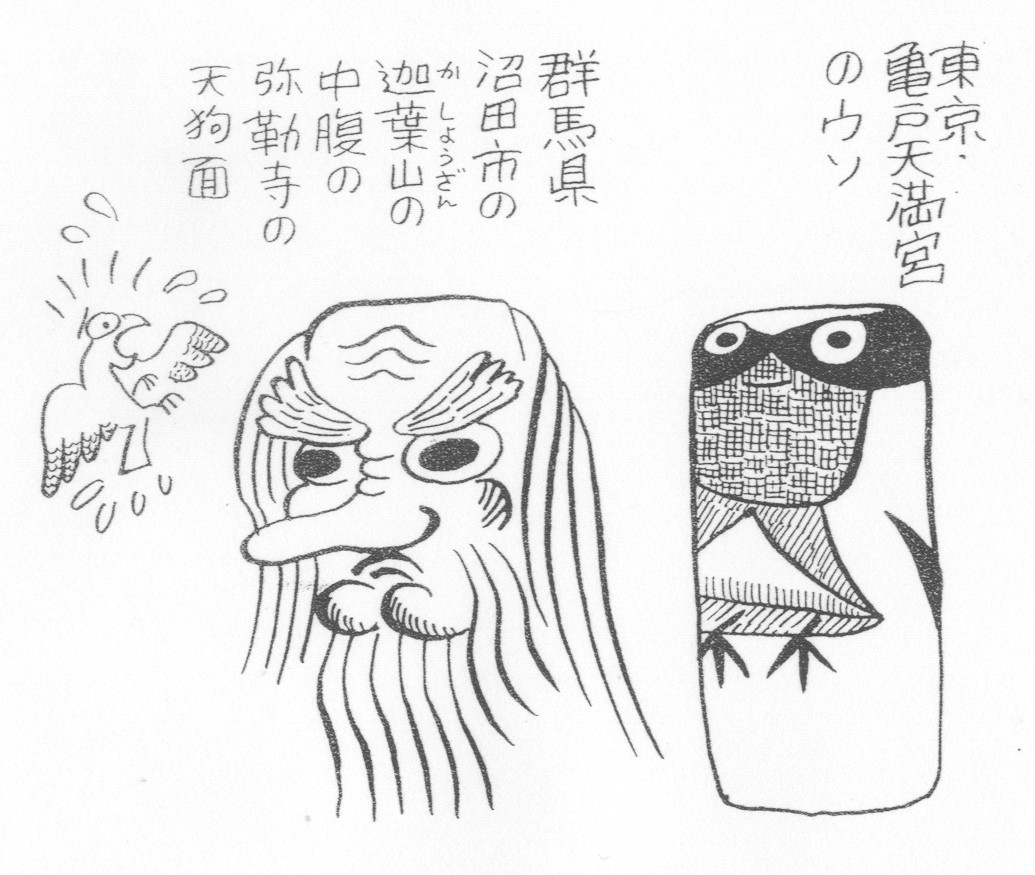 東京・
亀戸天満宮
のウソ
群馬県
沼田市の
迦葉山の
かしょうざん
中腹の
弥勒寺の
天狗面